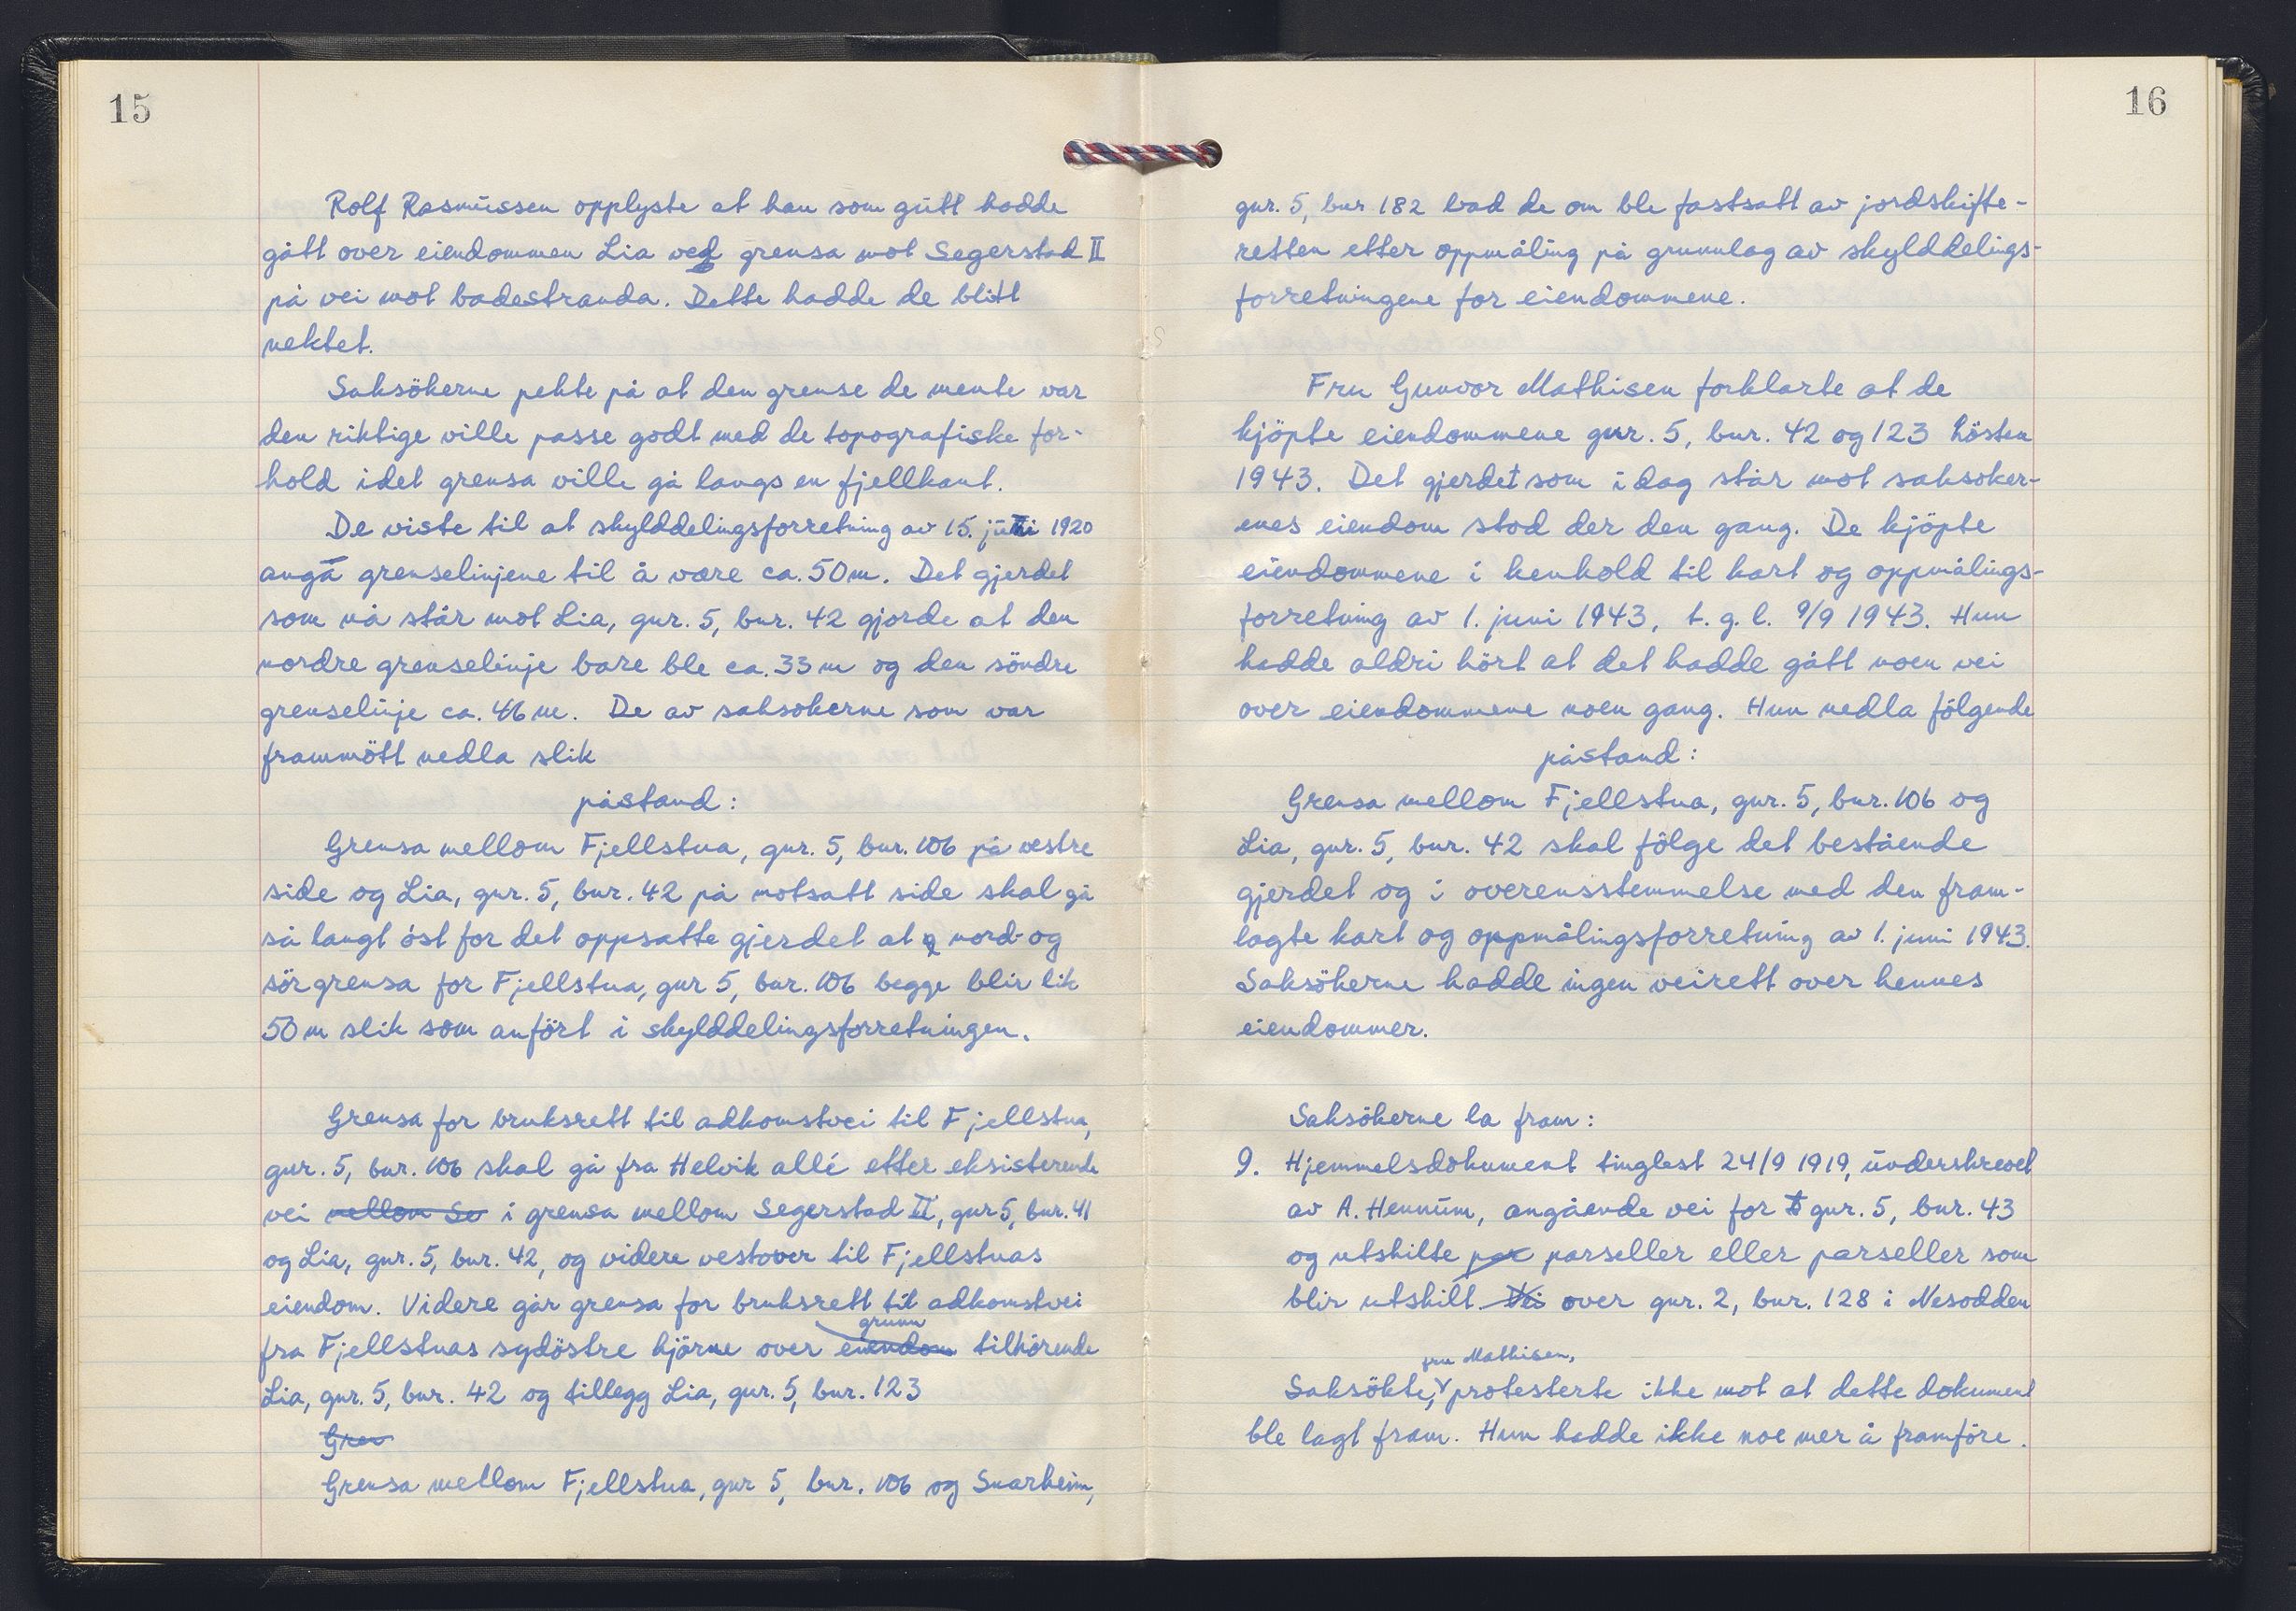 15
Rolf Rasmussen opplyste at han som gutt hadde
gått over eiendommen Lia ved grensa mot Segerstad II
på vei mot badestranda. Dette hadde de blitt
nektet.
Saksökerne pekte på at den grense de mente var
den riktige ville passe godt med de topografiske for-
hold idet grensa ville gå langs en fjellkant.
De viste til at skylddelingsforretning av 15. juni 1920
angå grenselinjene til å være ca. 50 m. Det gjerdet
som nå står mot Lia, gnr. 5, bnr. 42 gjorde at den
nordre grenselinje bare ble ca. 33 m og den söndre
grenselinje ca. 46 m. De av saksokerne som var
frammött nedla slik
påstand:
Grensa mellom Fjellstua, gnr. 5, bnr. 106 på vestre
side og Lia, gnr. 5, bnr. 42 på motsatt side skal gå
så langt öst for det oppsatte gjerdet at nord- og
sörgrensa for Fjellstua, gnr 5, bnr. 106 begge blir lik
50 m slik som anfört i skylddelingsforretningen.
Grensa for bruksrett til adkomstvei til Fjellstua,
gnr. 5, bnr. 106 skal gå fra Helvik allé etter eksisterende
vei mellom Se i grensa mellom Segerstad II, gnr 5, bnr. 41
og Lia, gnr. 5, bnr. 42, og videre vestover til Fjellstuas
eiendom. Videre går grensa for bruksrett til adkomstvei
grunn
fra Fjellstuas sydöstre hjörne over eiendom tilhörende
Lia, gnr. 5, bnr. 42 og tillegg Lia, gnr. 5, bnr. 123
Gren
Grensa mellom Fjellstua, gnr 5, bnr. 106 og Snarheim,
16
gnr. 5, bnr 182 bad de om ble fastsatt av jordskifte-
retten etter oppmåling på grunnlag av skylddelings-
forretningene for eiendommene.
Fru Gunvor Mathisen forklarte at de
kjöpte eiendommene gnr. 5, bnr. 42 og 123 hösten
1943. Det gjerdet som i dag står mot saksoker-
enes eiendom stod der den gang. De kjöpte
eiendommene i henhold til kart og oppmålings-
forretning av 1. juni 1943, t. g. l. 9/9 1943. Hun
hadde aldri hört at det hadde gått noen vei
over eiendommene noen gang. Hun nedla fölgende
påstand:
Grensa mellom Fjellstua, gnr. 5, bnr. 106 og
Lia, gnr. 5, bnr. 42 skal fölge det bestående
gjerdet og i overensstemmelse med den fram-
lagte kart og oppmålingsforretning av 1. juni 1943.
Saksökerne hadde ingen veirett over hennes
eiendommer.
Saksökerne la fram:
9. Hjemmelsdokument tinglest 24/9 1919, underskrevet
av A. Hennum, angående vei for gnr. 5, bnr. 43
og utskilte par parseller eller parseller som
blir utskilt Vei over gnr. 2, bnr. 128 i Nesodden
fru Mathisen,
Saksökte, protesterte ikke mot at dette dokument
ble lagt fram. Hun hadde ikke noe mer å framföre.